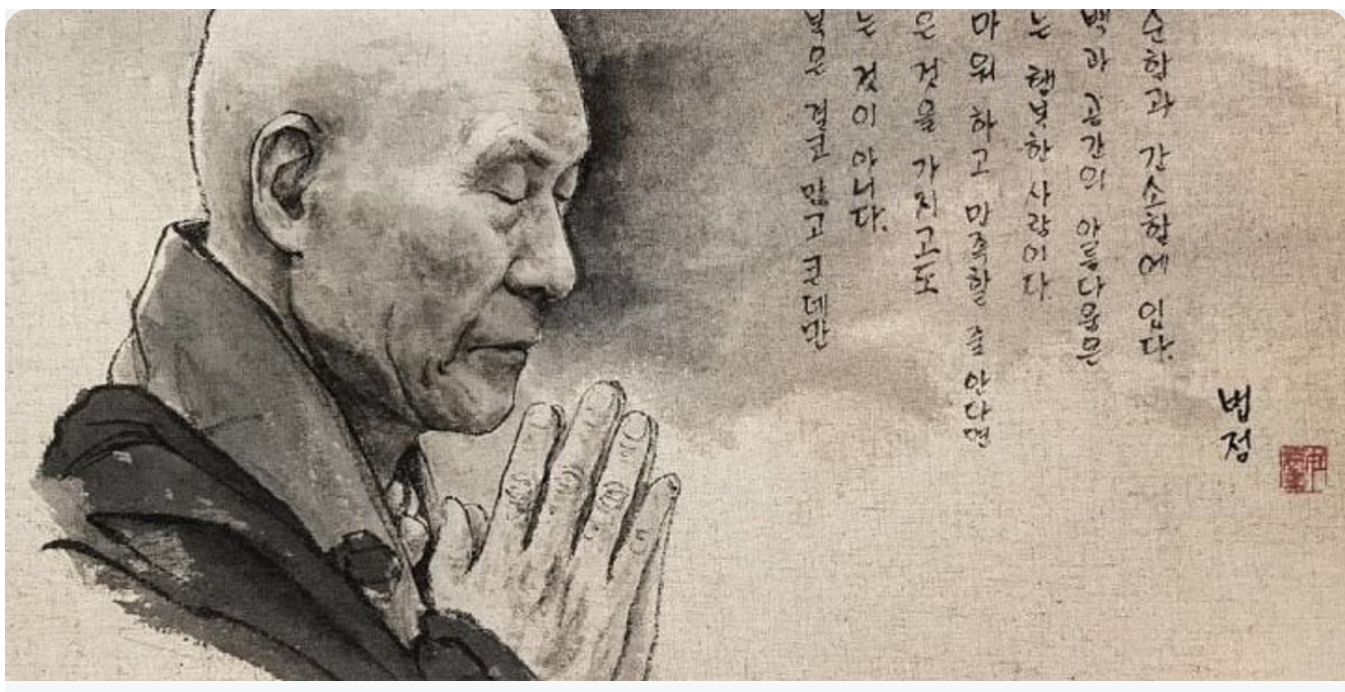 복은 결코 많고 큰데만
는 것이 아니다.
은 것을 가지고도
마워 하고 만족할 줄 안다면
는 행복한 사람이다.
백과 공간의 아름다움은
순함과 간소함에 있다.
법정